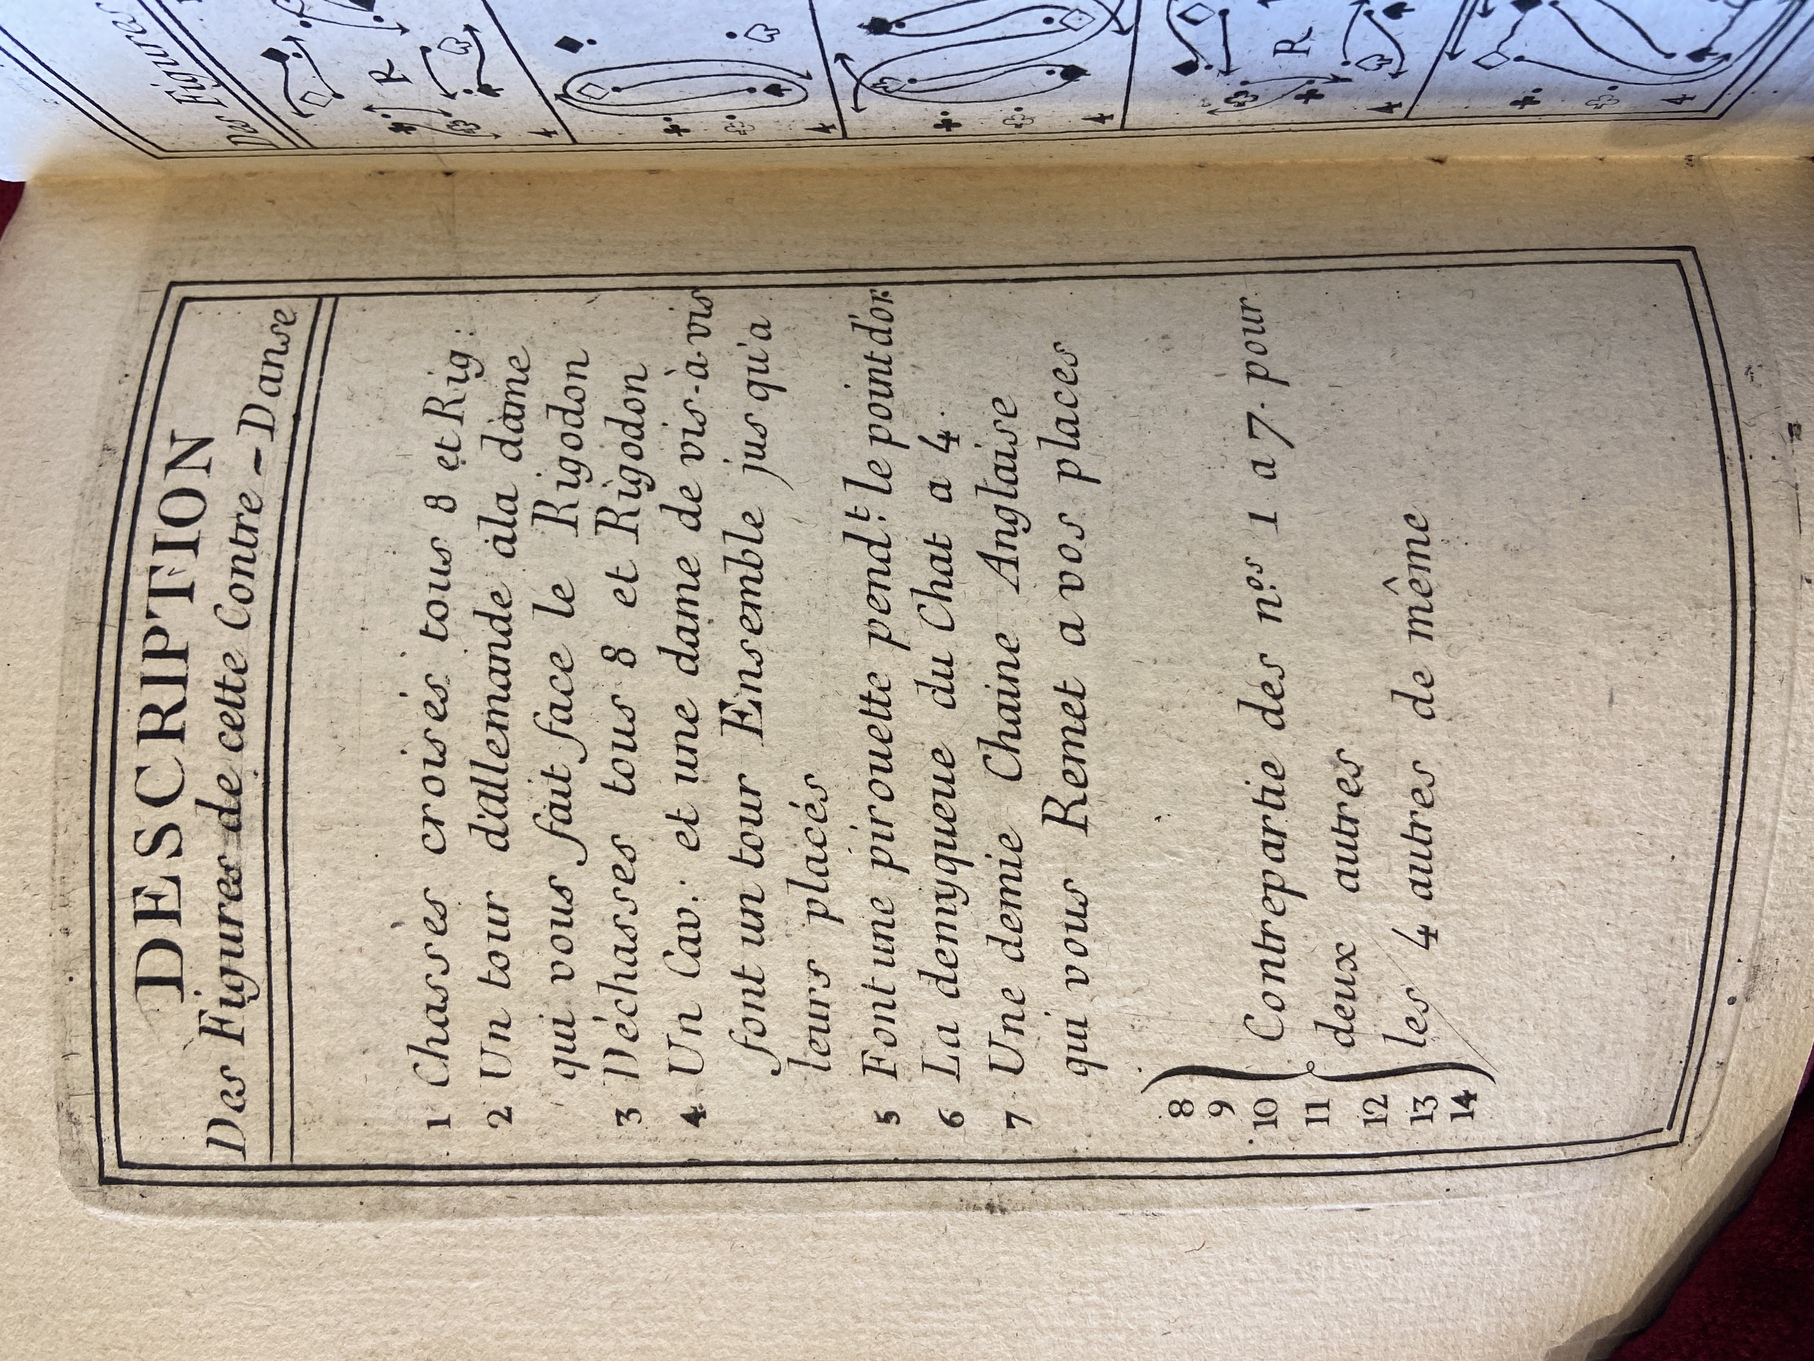 DESCRIPTION
Des Figures de cette Contre-Danse
1 Chasses croisés tous 8 et Rig.
2 Un tour d'allemande àla dame
qui vous fait face le Rigodon
3 Déchasses tous 8 et Rigodon
4 Un Cav. et une dame de vis-à-vis
font un tour Ensemble jus qu'a
leurs placés
5 Font une pirouette pend.t le point d'or
6 La demyqueue du Chat a 4.
7 Une demie Chaine Anglaise
qui vous Remet a vos places
8
9
10 Contrepartie des n.os 1 a 7. pour
11 deux autres
12
13 les 4 autres de même
14
Des Figures
R
4
4
4
R
4
4